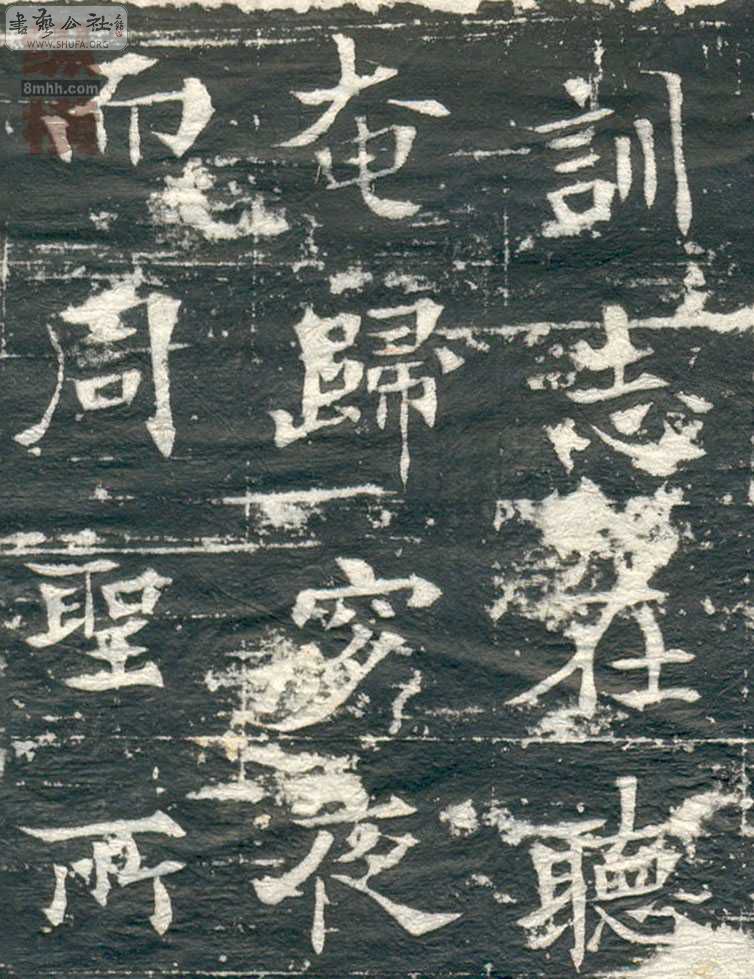 訓志在聽
奄歸穸夜
而周聖所
書藝公社
WWW.SHUFA.ORG
8mhh.com